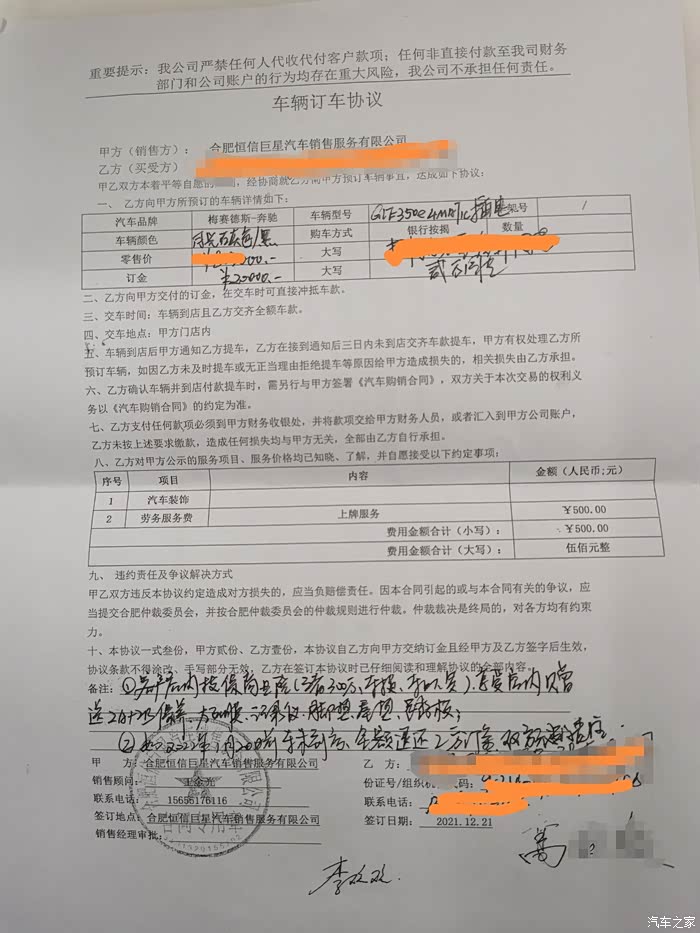 重要提示：我公司严禁任何人代收代付客户款项；任何非直接付款至我司财务
部门和公司账户的行为均存在重大风险，我公司不承担任何责任。
车辆订车协议
甲方（销售方）： 合肥恒信巨星汽车销售服务有限公司
乙方（买受方）
甲乙双方本着平等自愿的 ，经协商就乙方向甲方预订车辆事宜，达成如下协议：
一、 乙方向甲方所预订的车辆详情如下：
汽车品牌 梅赛德斯-奔驰 车辆型号 350e 插电 架号 /
车辆颜色 购车方式 银行按揭 数量
零售价 大写
订金 ¥20000.- 大写
二、乙方向甲方交付的订金，在交车时可直接冲抵车款。
三、交车时间：车辆到店且乙方交齐全额车款。
四、交车地点：甲方门店内
五、车辆到店后甲方通知乙方提车，乙方在接到通知后三日内未到店交齐车款提车，甲方有权处理乙方所
预订车辆，如因乙方未及时提车或无正当理由拒绝提车等原因给甲方造成损失的，相关损失由乙方承担。
六、乙方确认车辆并到店付款提车时，需另行与甲方签署《汽车购销合同》，双方关于本次交易的权利义
务以《汽车购销合同》的约定为准。
七、乙方支付任何款项必须到甲方财务收银处，并将款项交给甲方财务人员，或者汇入到甲方公司账户，
乙方未按上述要求缴款，造成任何损失均与甲方无关，全部由乙方自行承担。
八、乙方对甲方公示的服务项目、服务价格均已知晓、了解，并自愿接受以下约定事项：
序号 项目 内容 金额（人民币;元）
1 汽车装饰
2 劳务服务费 上牌服务 ¥500.00
费用金额合计（小写）： ¥500.00
费用金额合计（大写）： 伍佰元整
九、 违约责任及争议解决方式
甲乙双方违反本协议约定造成对方损失的，应当负赔偿责任。因本合同引起的或与本合同有关的争议，应
当提交合肥仲裁委员会，并按合肥仲裁委员会的仲裁规则进行仲裁。仲裁裁决是终局的，对各方均有约束
力。
十、本协议一式叁份，甲方贰份、乙方壹份，本协议自乙方向甲方交纳订金且经甲方及乙方签字后生效，
协议条款不得涂改、手写部分无效；乙方在签订本协议时已仔细阅读和理解协议的全部内容。
备注：①店内投保商业险 店内只赠
送 记录仪、脚垫、尾垫
②如2022年1月20日前车未到店，全额退还乙方订金，双方
甲 方：合肥恒信巨星汽车销售服务有限公司 乙
销售顾问： 份证号/组织机 码：
联系电话： 15656176116 联系电话：
签订地点：合肥恒信巨星汽车销售服务有限公司 签订日期： 2021.12.21
销售经理审批：
汽车之家